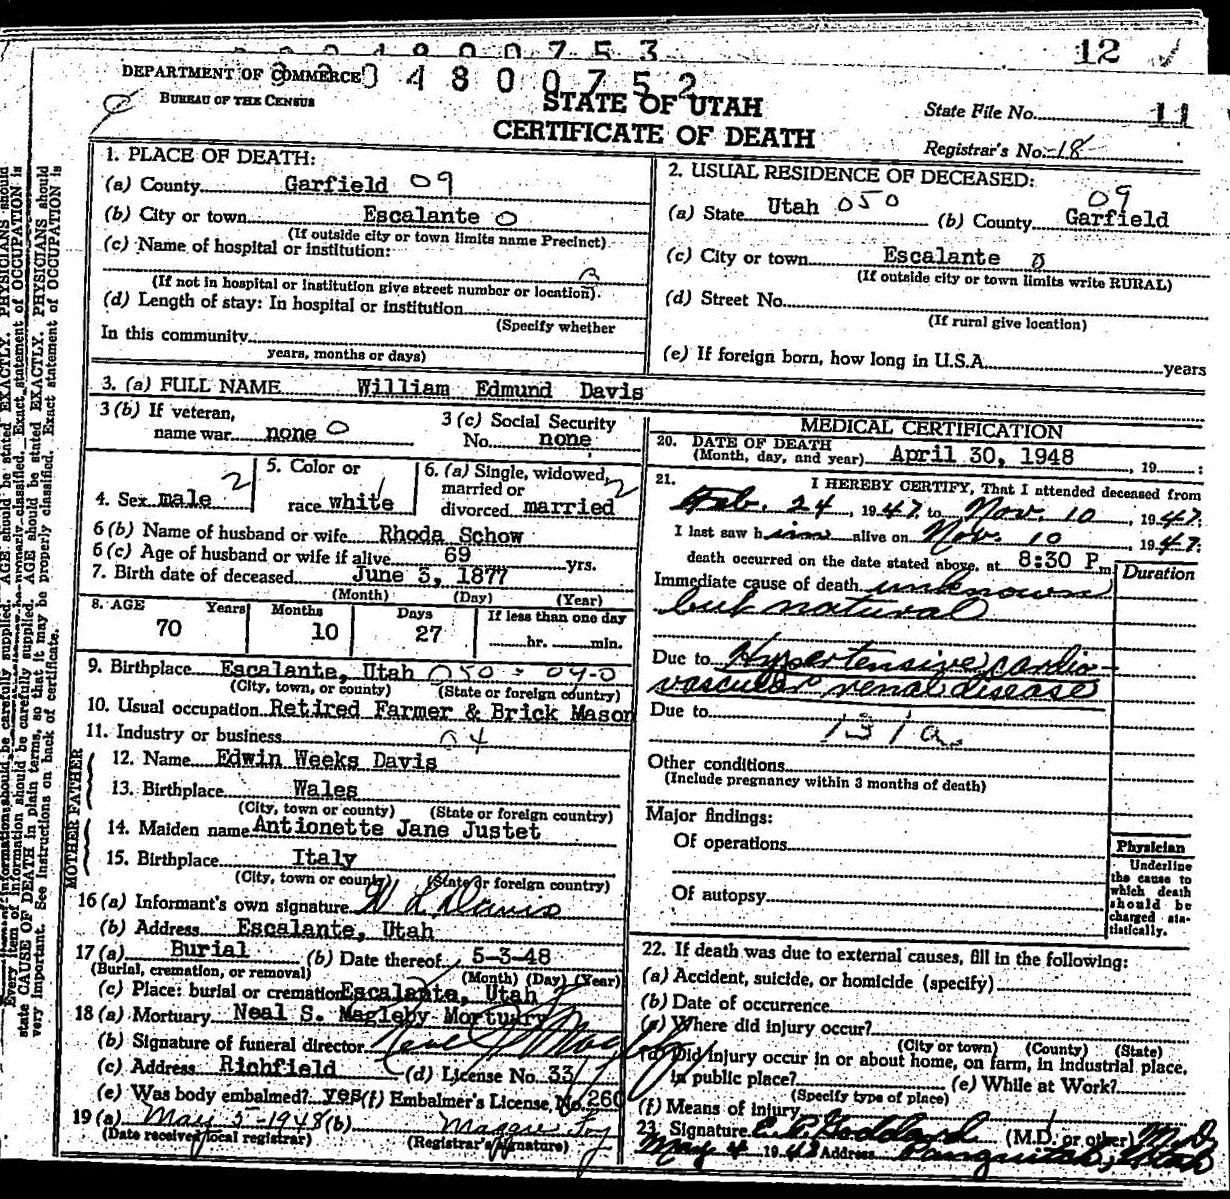 12 ✓
DEPARTMENT OF COMMERCE
BUREAU OF THE CENSUS
4 8 0 0 7 5 2
STATE OF UTAH
CERTIFICATE OF DEATH
State File No. 11
Registrar's No. 18
1. PLACE OF DEATH:
(a) County Garfield 09
(b) City or town Escalante 0
(If outside city or town limits name Precinct)
(c) Name of hospital or institution:
(If not in hospital or institution give street number or location).
(d) Length of stay: In hospital or institution
(Specify whether
In this community
years, months or days)
2. USUAL RESIDENCE OF DECEASED:
(a) State Utah 050 (b) County Garfield 09
(c) City or town Escalante 0
(If outside city or town limits write RURAL)
(d) Street No.
(If rural give location)
(e) If foreign born, how long in U.S.A. years
3. (a) FULL NAME William Edmund Davis
3 (b) If veteran, name war none 0
3 (c) Social Security No. none
4. Sex male 2
5. Color or race white 1
6. (a) Single, widowed, married or divorced married 2
6 (b) Name of husband or wife Rhoda Schow
6 (c) Age of husband or wife if alive 69 yrs.
7. Birth date of deceased June 3, 1877
(Month) (Day) (Year)
8. AGE Years Months Days If less than one day
70 10 27 hr. min.
9. Birthplace Escalante, Utah 050 : 040
(City, town, or county) (State or foreign country)
10. Usual occupation Retired Farmer & Brick Mason
11. Industry or business 04
FATHER
12. Name Edwin Weeks Davis
13. Birthplace Wales
(City, town or county) (State or foreign country)
MOTHER
14. Maiden name Antionette Jane Justet
15. Birthplace Italy
(City, town or county) (State or foreign country)
16 (a) Informant's own signature W L Davis
(b) Address Escalante, Utah
17 (a) Burial (b) Date thereof 5-3-48
(Burial, cremation, or removal) (Month) (Day) (Year)
(c) Place: burial or cremation Escalante, Utah
18 (a) Mortuary Neal S. Magleby Mortuary
(b) Signature of funeral director Neal S Magleby
(c) Address Richfield (d) License No. 33
(e) Was body embalmed? yes (f) Embalmer's License, No. 260
19 (a) May 5-1948 (b) Maggie Foy
(Date received local registrar) (Registrar's signature)
MEDICAL CERTIFICATION
20. DATE OF DEATH
(Month, day, and year) April 30, 1948, 19 :
21. I HEREBY CERTIFY, That I attended deceased from
Feb. 24, 1947 to Nov. 10, 1947.
I last saw him alive on Nov. 10 1947:
death occurred on the date stated above, at 8:30 P m
Duration
Immediate cause of death unknown
but natural
Due to Hypertensive cardio-
vascular renal disease
Due to
131a.
Other conditions
(Include pregnancy within 3 months of death)
Major findings:
Of operations
Of autopsy
Physician
Underline
the cause to
which death
should be
charged sta-
tistically.
22. If death was due to external causes, fill in the following:
(a) Accident, suicide, or homicide (specify)
(b) Date of occurrence
(c) Where did injury occur?
(City or town) (County) (State)
(d) Did injury occur in or about home, on farm, in industrial place,
in public place? (e) While at Work?
(Specify type of place)
(f) Means of injury
23. Signature (M.D. or other) M.D.
May 4 1948 Address Panguitch, Utah